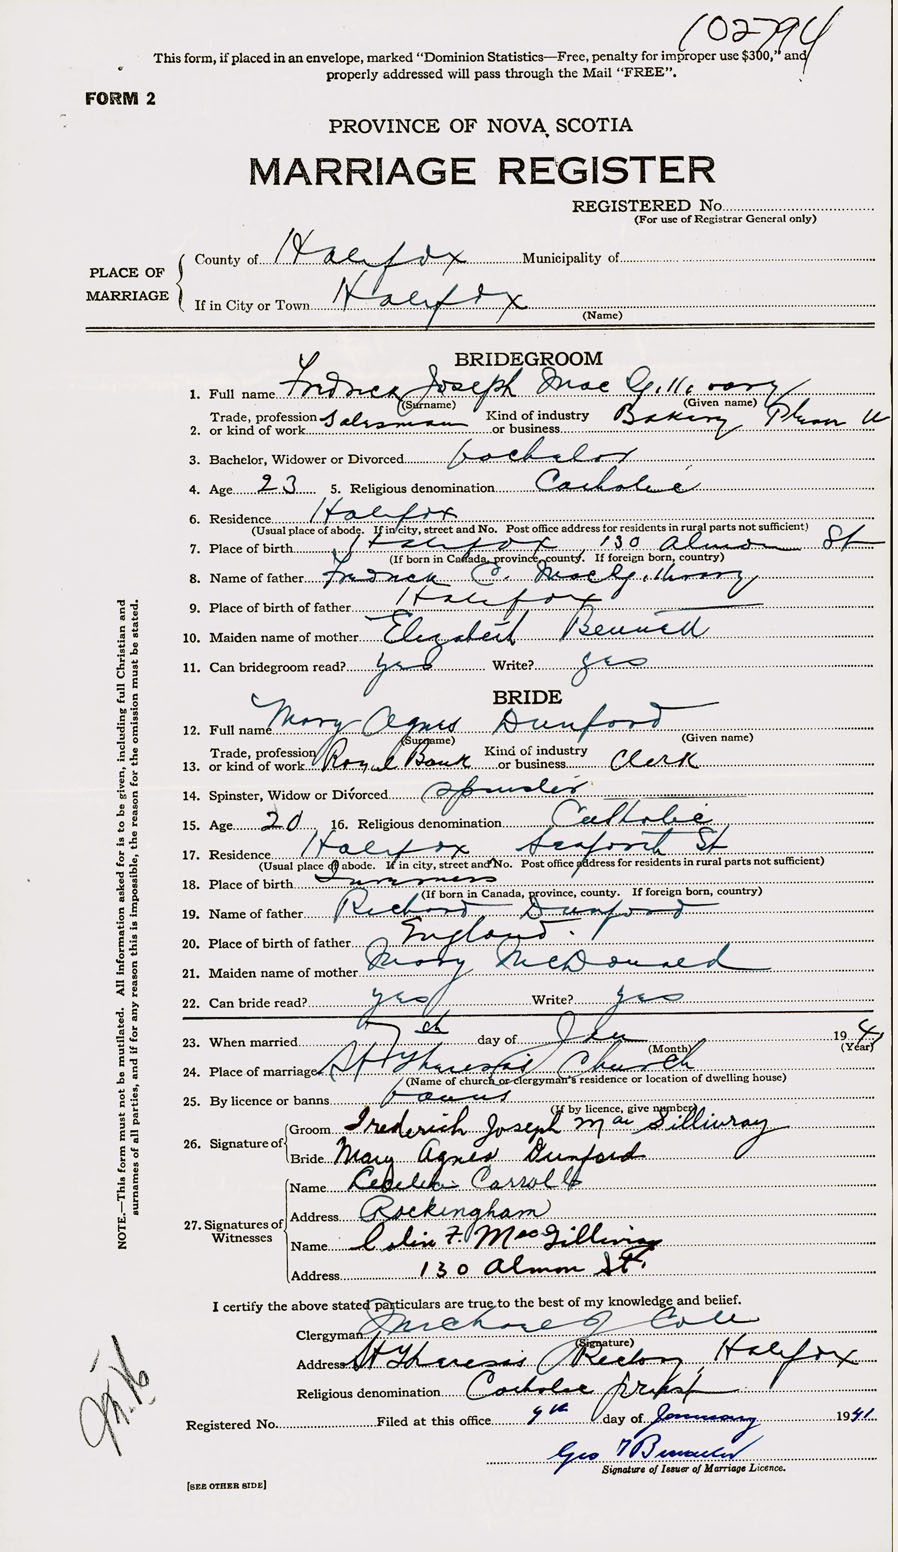 102794
This form, if placed in an envelope, marked “Dominion Statistics—Free, penalty for improper use $300,” and
properly addressed will pass through the Mail “FREE”.
FORM 2
PROVINCE OF NOVA SCOTIA
MARRIAGE REGISTER
REGISTERED No.
(For use of Registrar General only)
PLACE OF MARRIAGE
County of Halifax Municipality of
If in City or Town Halifax
(Name)
BRIDEGROOM
1. Full name Fredrick Joseph MacGillivary
(Surname) (Given name)
2. Trade, profession or kind of work Salesman Kind of industry or business Bakery
3. Bachelor, Widower or Divorced bachelor
4. Age 23 5. Religious denomination Catholic
6. Residence Halifax
(Usual place of abode. If in city, street and No. Post office address for residents in rural parts not sufficient)
7. Place of birth Halifax 130 Almon St
(If born in Canada, province, county. If foreign born, country)
8. Name of father Fredrick C. MacGillivary
9. Place of birth of father Halifax
10. Maiden name of mother Elizabeth Bennett
11. Can bridegroom read? yes Write? yes
BRIDE
12. Full name Mary Agnes Dunford
(Surname) (Given name)
13. Trade, profession or kind of work Royal Bank Kind of industry or business Clerk
14. Spinster, Widow or Divorced spinster
15. Age 20 16. Religious denomination Catholic
17. Residence Halifax Seaforth St
(Usual place of abode. If in city, street and No. Post office address for residents in rural parts not sufficient)
18. Place of birth
(If born in Canada, province, county. If foreign born, country)
19. Name of father Richard Dunford
20. Place of birth of father England.
21. Maiden name of mother Mary McDonald
22. Can bride read? yes Write? yes
23. When married 7th day of Jan 194
(Month) (Year)
24. Place of marriage St Theresis Church
(Name of church or clergyman's residence or location of dwelling house)
25. By licence or banns banns
(If by licence, give number)
26. Signature of
Groom Frederick Joseph MacGillivray
Bride Mary Agnes Dunford
27. Signatures of Witnesses
Name Carroll
Address Rockingham
Name Colin F. MacGillivray
Address 130 Almon St.
I certify the above stated particulars are true to the best of my knowledge and belief.
Clergyman Michael J Cole
(Signature)
Address St Theresis Rectory, Halifax
Religious denomination Catholic priest
Registered No. Filed at this office 9th day of January 1941
Geo
Signature of Issuer of Marriage Licence.
[SEE OTHER SIDE]
NOTE.—This form must not be mutilated. All information asked for is to be given, including full Christian and
surnames of all parties, and if for any reason this is impossible, the reason for the omission must be stated.